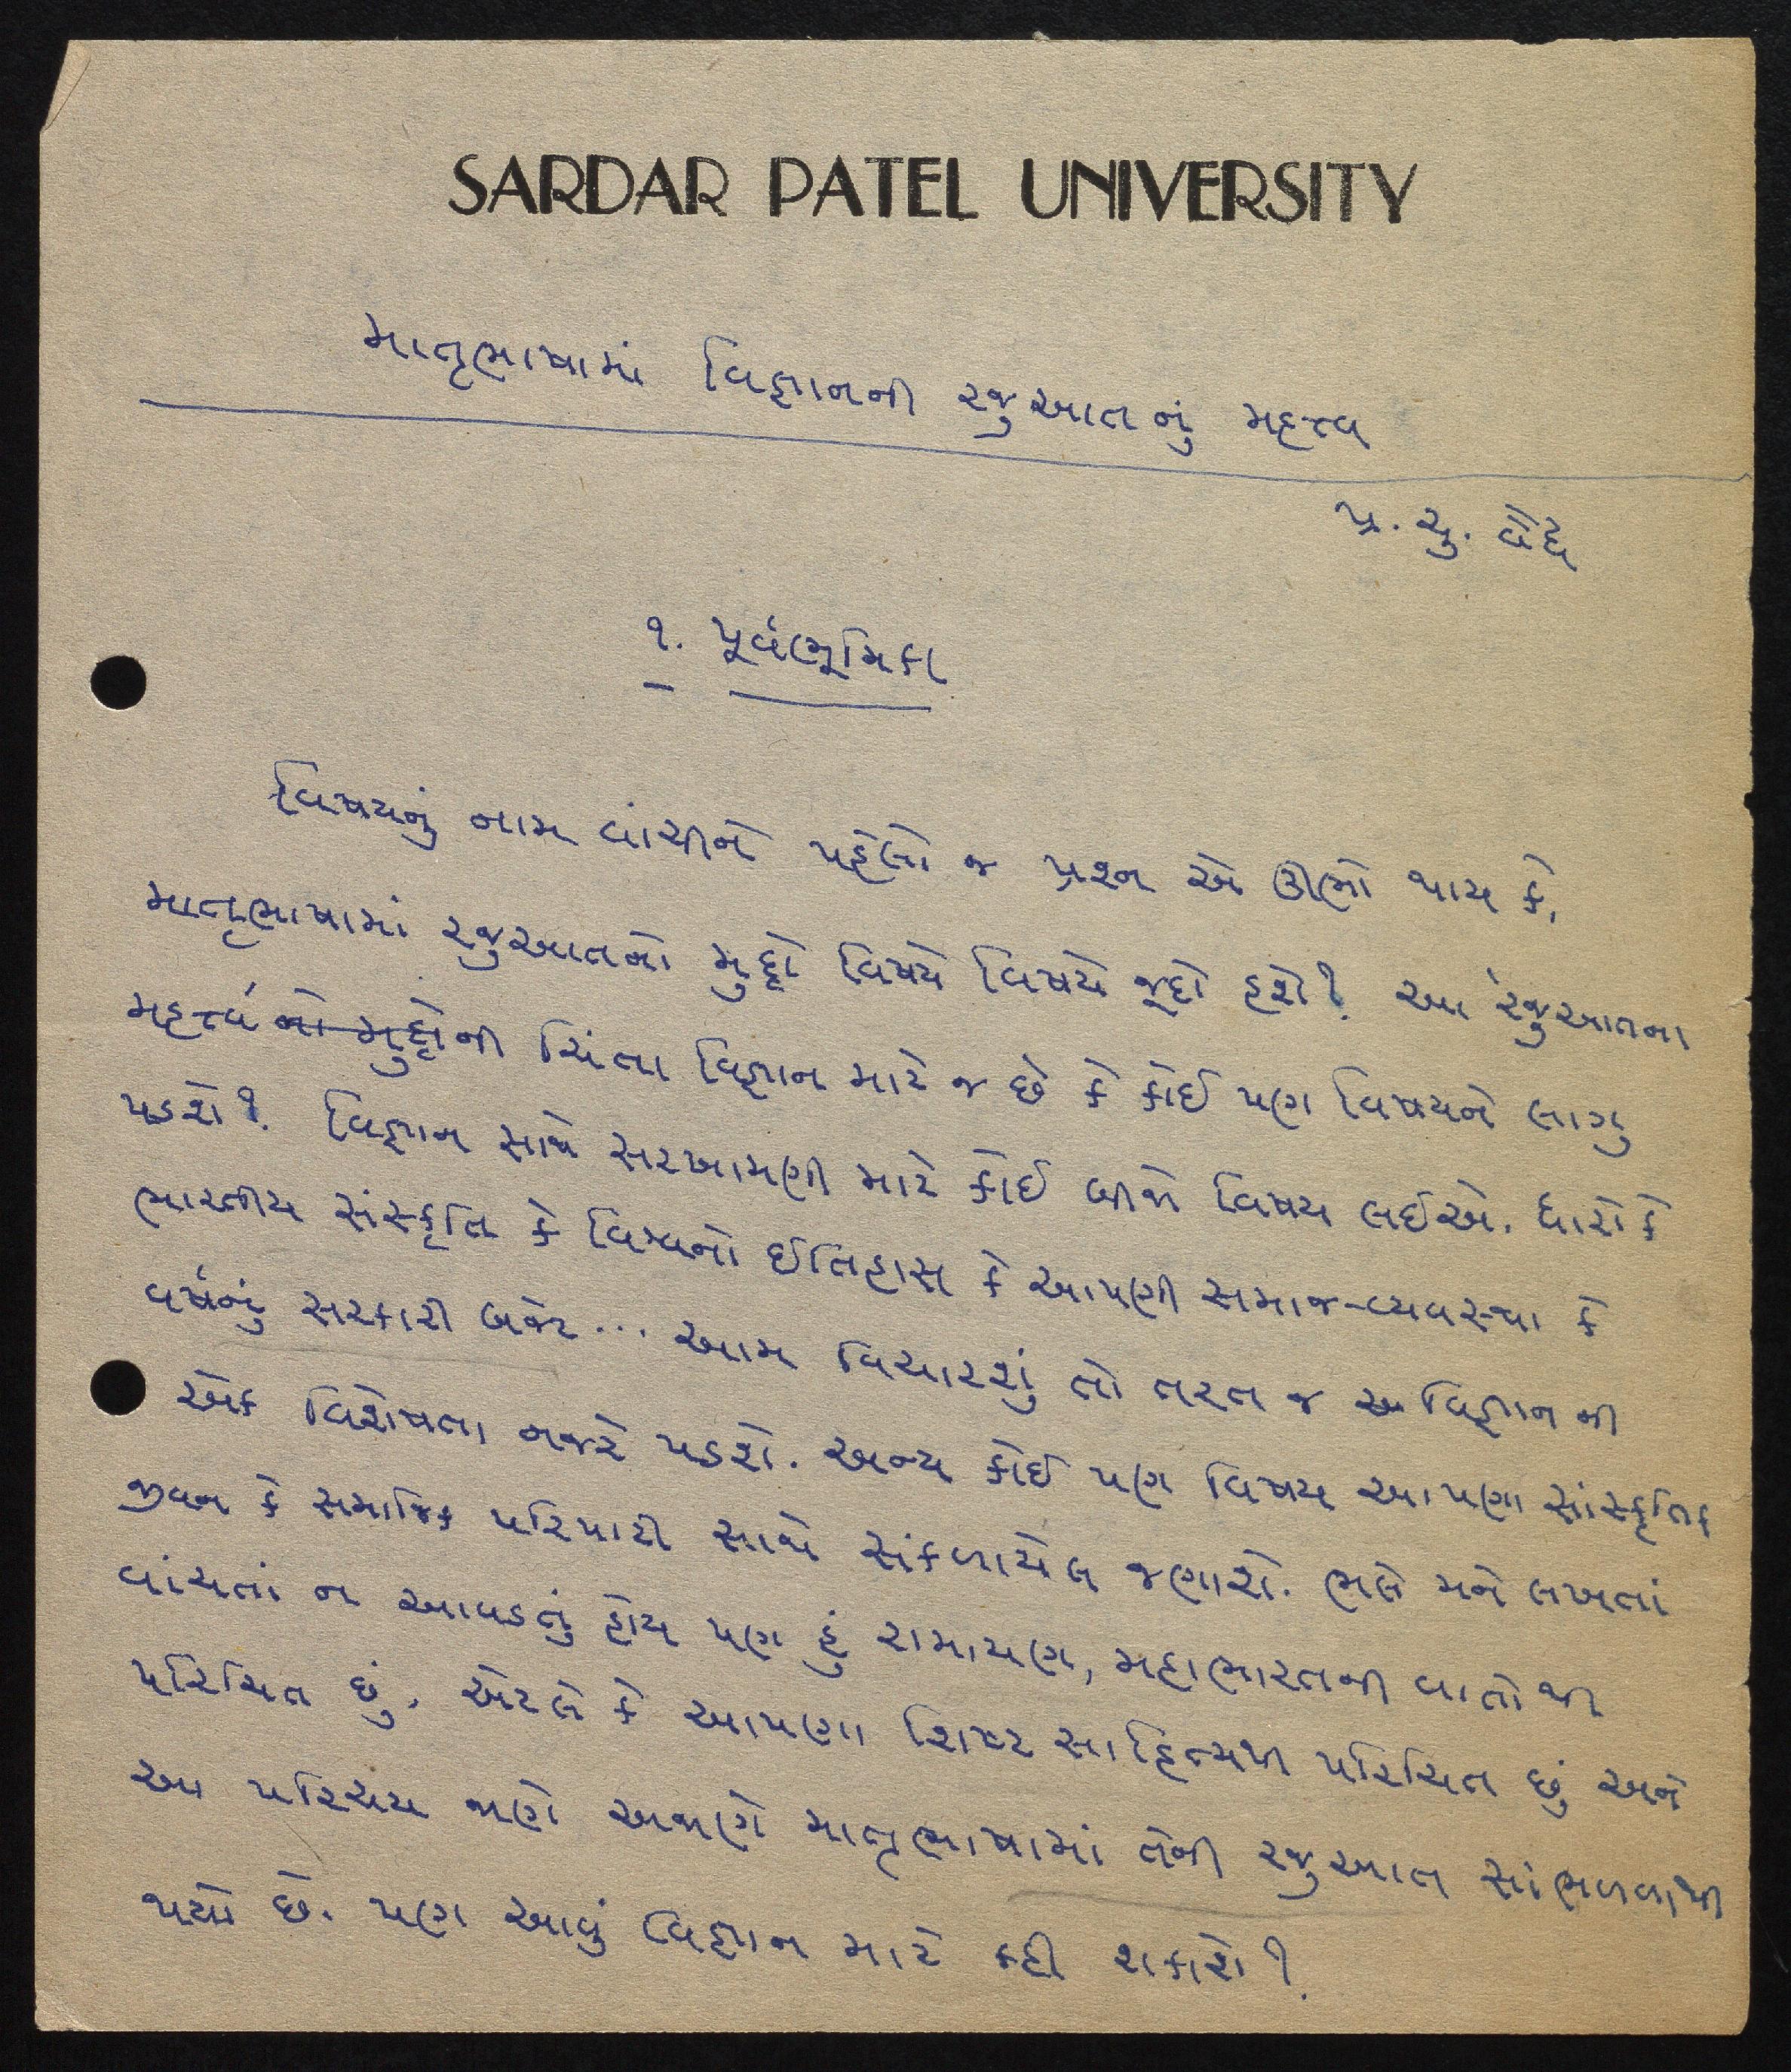 SARDAR PATEL UNIVERSITY
માતૃભાષામાં વિજ્ઞાનની રજુઆતનું મહત્ત્વ
પ્ર. ચુ. વૈદ્ય
૧. પૂર્વભૂમિકા
વિષયનું નામ વાંચીને પહેલો જ પ્રશ્ન એ ઊભો થાય કે,
માતૃભાષામાં રજુઆતનો મુદ્દો વિષયે વિષયે જૂદો હશે? આ રજુઆતના
મહત્ત્વ નો મુદ્દોની ચિંતા વિજ્ઞાન માટે જ છે કે કોઈ પણ વિષયને લાગુ
પડશે? વિજ્ઞાન સાથે સરખામણી માટે કોઈ બીજો વિષય લઈએ. ધારો કે
ભારતીય સંસ્કૃતિ કે વિશ્વનો ઈતિહાસ કે આપણી સમાજ-વ્યવસ્થા કે
વર્ષનું સરકારી બજેટ... આમ વિચારશું તો તરત જ વિજ્ઞાનની
એક વિશેષતા નજરે પડશે. અન્ય કોઈ પણ વિષય આપણા સાંસ્કૃતિક
જીવન કે સમાજિક પરિપાટી સાથે સંકળાયેલ જણાશે. ભલે મને લખતાં
વાંચતાં ન આવડતું હોય પણ હું રામાયણ, મહાભારતની વાતોથી
પરિચિત છું. એટલે કે આપણા શિષ્ટ સાહિત્યથી પરિચિત છું અને
આ પરિચય જાણે અજાણે માતૃભાષામાં તેની રજુઆત સાંભળવાથી
થયો છે. પણ આવું વિજ્ઞાન માટે કહી શકાશે?